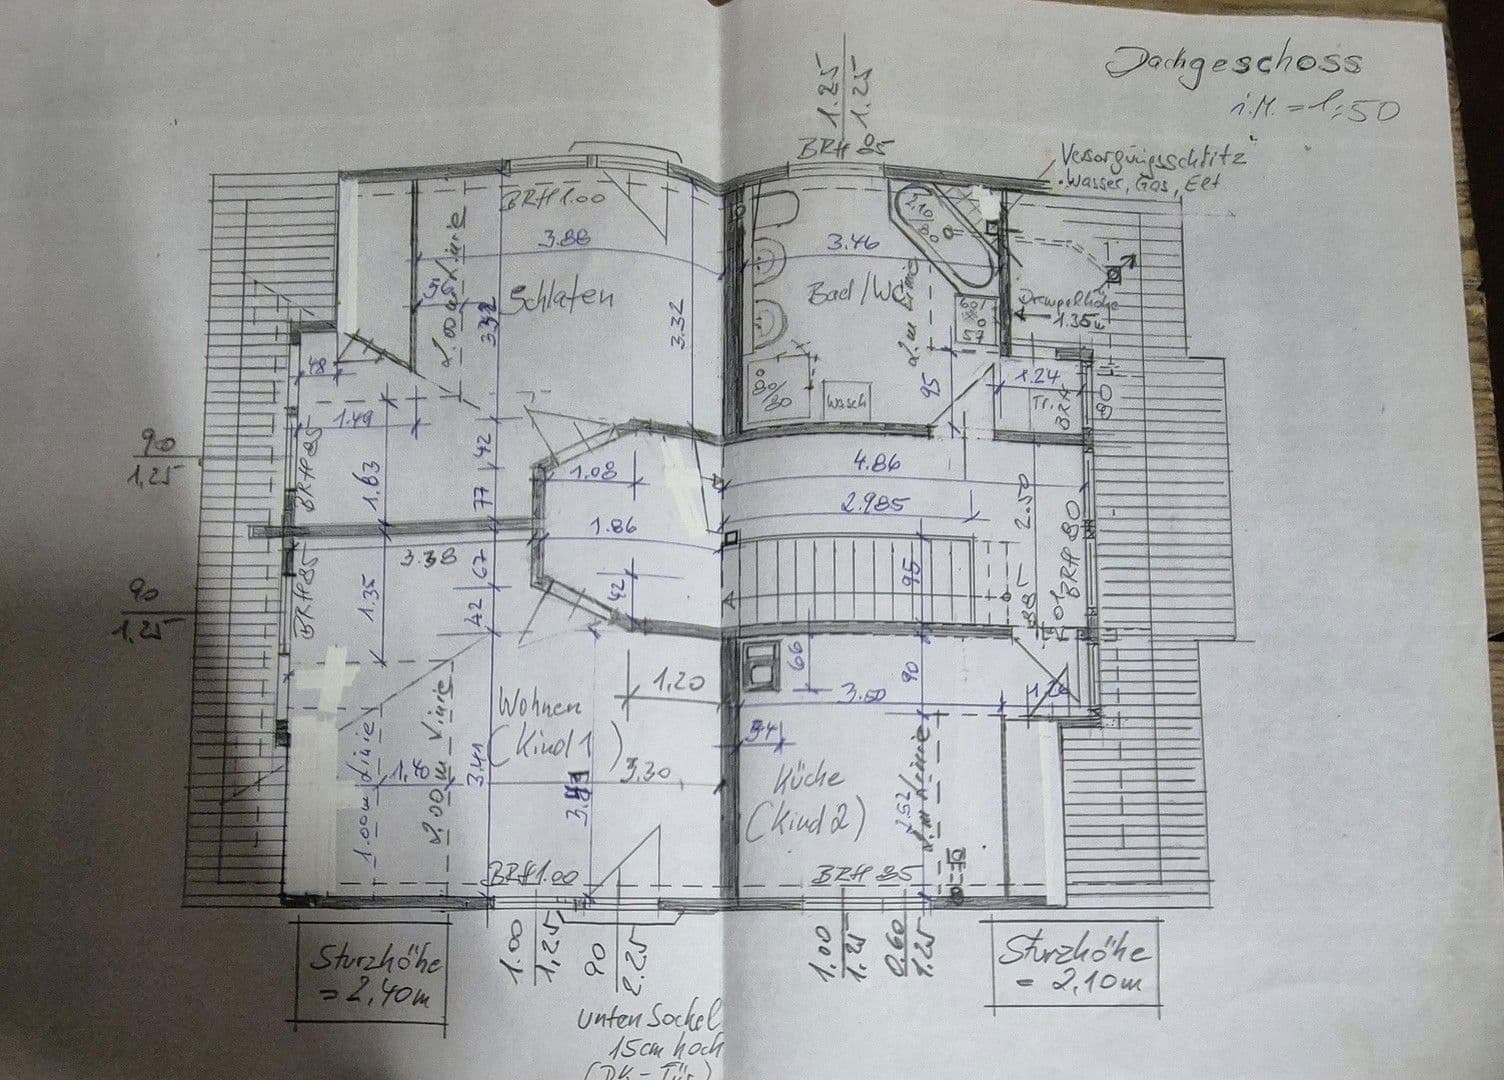 Dachgeschoss
i.M. = 1:50
1.25
1.25
BRH 85
Versorgungsschlitz
Wasser, Gas, Elt
BRH 1.00
2.10
80
3.88
3.46
56
2.00m Linie
Schlafen
Bad/WC
2.m Linie
Drempelhöhe
1.35m
3.32
3.32
60/
48
80/80
Wasch
95
1.24
Tr.
BRH
80
1.49
90
1.25
BRH 85
1.63
42
77
1.08
4.86
2.985
2.50
1.86
BRH 80
3.38
67
90
1.25
BRH 85
1.35
42
42
95
885
1.01
66
90
1.20
3.50
Wohnen
(Kind 1)
34
1.00m Linie
2.00m Linie
3.41
3.30
Küche
(Kind 2)
2.52
2.m Linie
BRH 1.00
BRH 85
Sturzhöhe
= 2,40m
1.00
1,25
90
2.25
1.00
1.25
0.60
1.25
Sturzhöhe
= 2,10m
unten Sockel
15cm hoch
(DK-Tür)